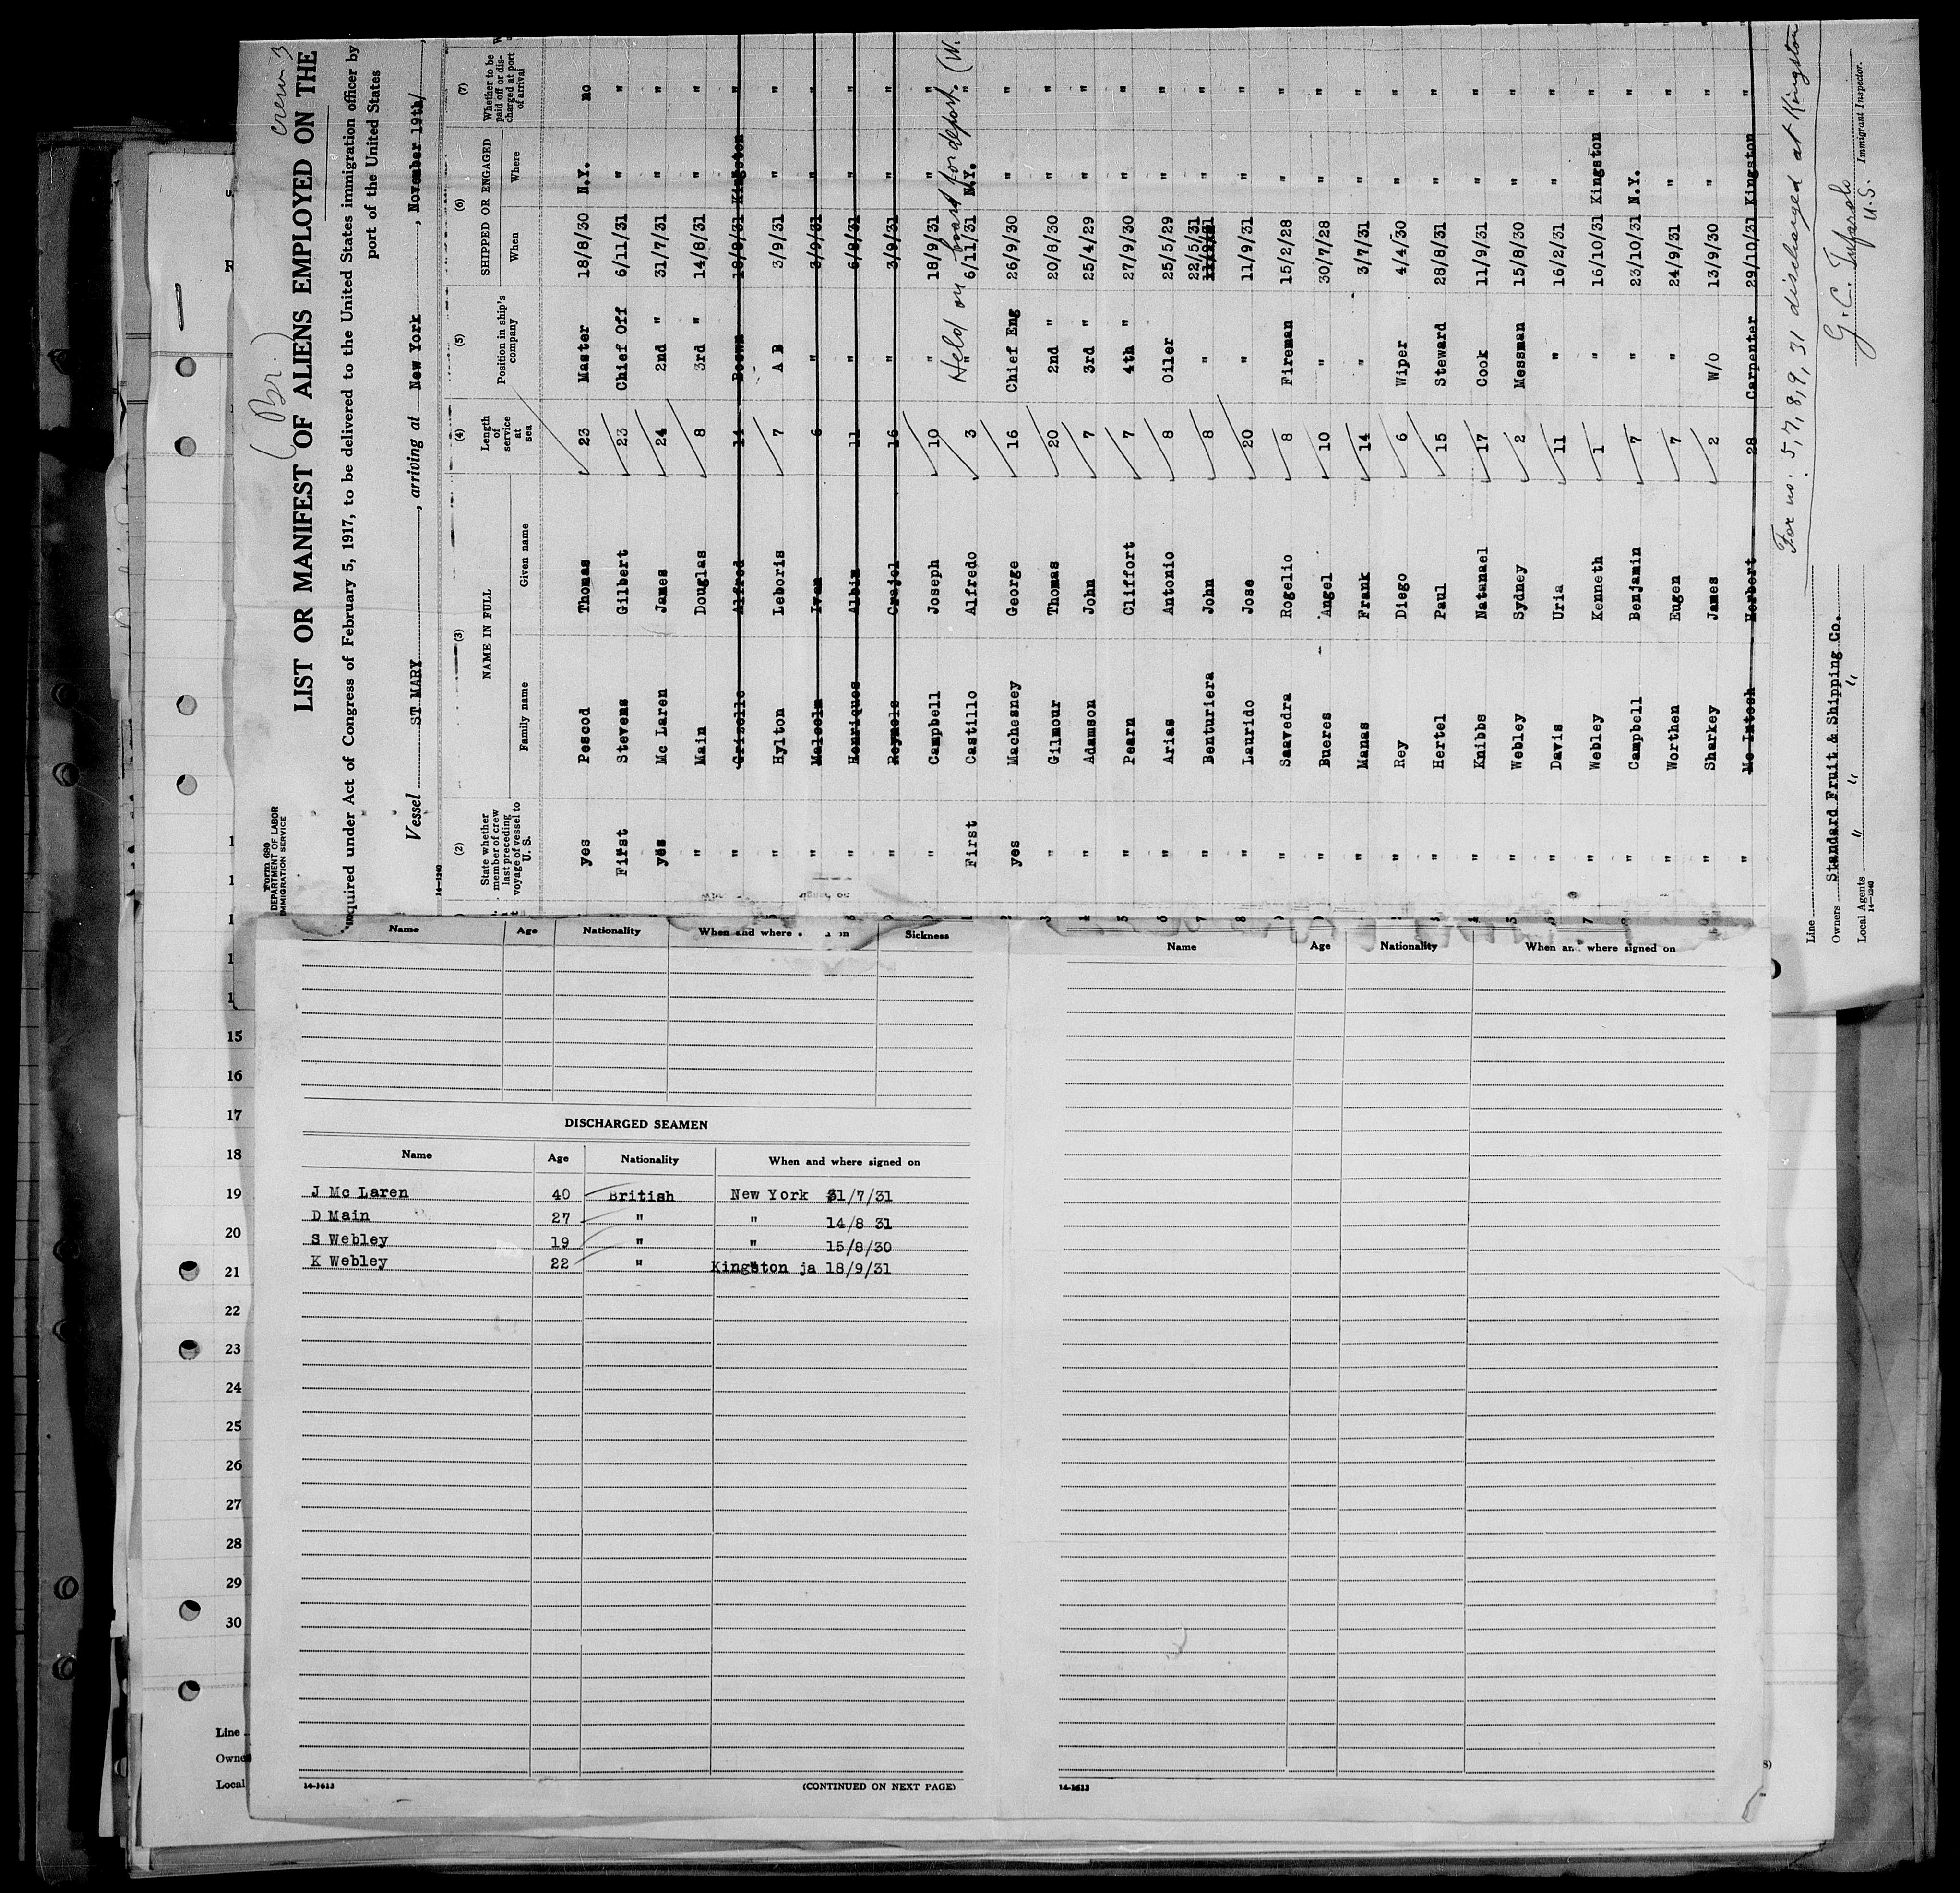 crew 3
(Br.)
Form 680
DEPARTMENT OF LABOR
IMMIGRATION SERVICE
LIST OR MANIFEST OF ALIENS EMPLOYED ON THE
quired under Act of Congress of February 5, 1917, to be delivered to the United States immigration officer by
port of the United States
Vessel ST MARY, arriving at New York, November 19th/
14-1240
(2) (3) (4) (5) (6) (7)
State whether member of crew last preceding voyage of vessel to U. S. NAME IN FULL Family name Given name Length of service at sea Position in ship's company SHIPPED OR ENGAGED When Where Whether to be paid off or discharged at port of arrival
yes Pescod Thomas 23 Master 18/8/30 N.Y. no
First Stevens Gilbert 23 Chief Off 6/11/31 " "
yes Mc Laren James 24 2nd " 31/7/31 " "
" Main Douglas 8 3rd " 14/8/31 " "
" Grizelle Alfred 14 Boswn 18/9/31 Kingston "
" Hylton Leboris 7 A B 3/9/31 " "
" Malcolm Ivan 6 " 3/9/31 " "
" Henriques Albim 11 " 6/8/31 " "
" Reynols 16 " 3/9/31 " "
" Campbell Joseph 10 " 18/9/31 " "
First Castillo Alfredo 3 " 6/11/31 N.Y. "
Held on board for deport. (N.
yes Machesney George 16 Chief Eng 26/9/30 " "
" Gilmour Thomas 20 2nd " 20/8/30 " "
" Adamson John 7 3rd " 25/4/29 " "
" Pearn Cliffort 7 4th " 27/9/30 " "
" Arias Antonio 8 Oiler 25/5/29 " "
" Benturiera John 8 " 22/5/31 " "
" Laurido Jose 20 " 11/9/31 " "
" Saavedra Rogelio 8 Fireman 15/2/28 " "
" Bueres Angel 10 " 30/7/28 " "
" Manas Frank 14 " 3/7/31 " "
" Rey Diego 6 Wiper 4/4/30 " "
" Hertel Paul 15 Steward 28/8/31 " "
" Knibbs Natanael 17 Cook 11/9/31 " "
" Webley Sydney 2 Messman 15/8/30 " "
" Davis Uria 11 " 16/2/31 " "
" Webley Kenneth 1 " 16/10/31 Kingston "
" Campbell Benjamin 7 " 23/10/31 N.Y. "
" Worthen Eugen 7 " 24/9/31 " "
" Sharkey James 2 W/O 13/9/30 " "
" Mc Intosh Herbert 28 Carpenter 29/10/31 Kingston "
For no. 5, 7, 8, 9, 31 discharged at Kingston
Line
Owners Standard Fruit & Shipping Co.
Local Agents " " "
14-1240
U.S. Immigrant Inspector.
Name Age Nationality When and where Sickness
Name Age Nationality When and where signed on
DISCHARGED SEAMEN
Name Age Nationality When and where signed on
J Mc Laren 40 British New York 31/7/31
D Main 27 " " 14/8 31
S Webley 19 " " 15/8/30
K Webley 22 " Kingston ja 18/9/31
14-1613
(CONTINUED ON NEXT PAGE)
14-1613
15
16
17
18
19
20
21
22
23
24
25
26
27
28
29
30
Line
Owne
Local